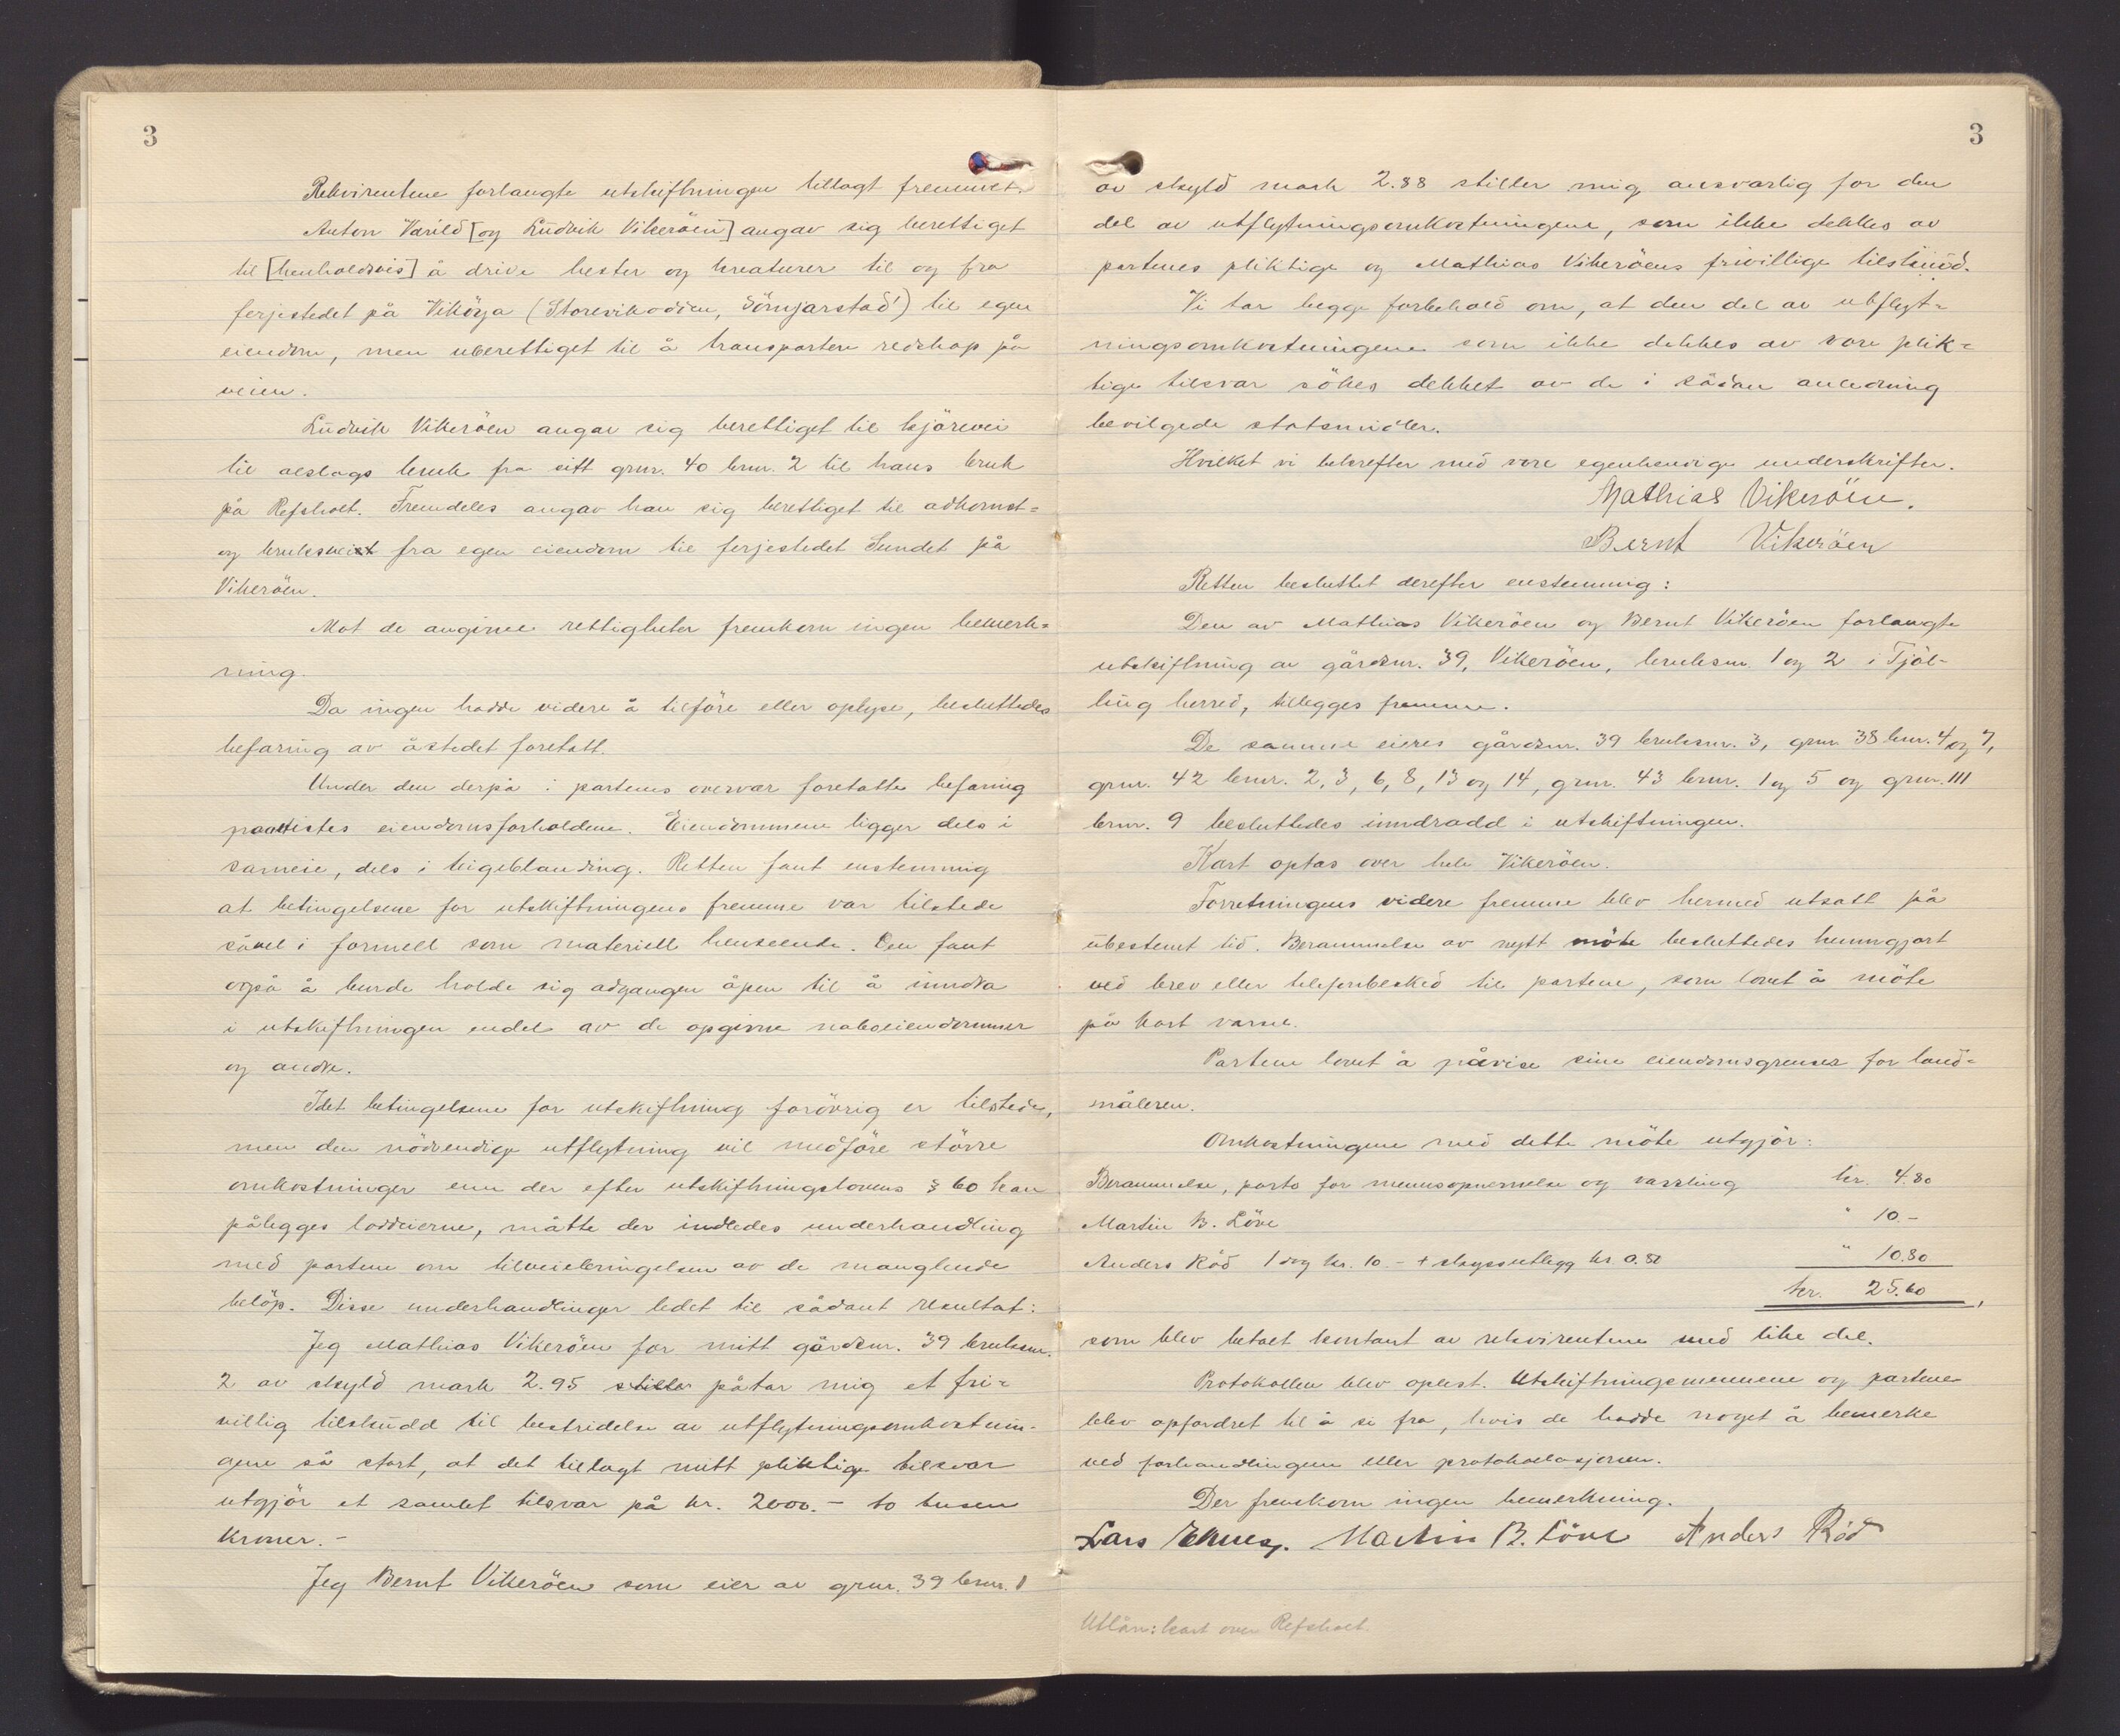 3
Rekvirentene forlangte utskiftningen tillagt fremmet.
Anton Varild [og Ludvik Vikeröen] angav sig berettiget
til [henholdsvis] å drive hester og kreaturer til og fra
ferjestedet på Viköya (Storevikodden, Sömjarstad) til egen
eiendom, men uberettiget til å transportere redskap på
veien.
Ludvik Vikeröen angav sig berettiget til kjörevei
til alslags bruk fra sitt grnr. 40 brnr. 2 til hans bruk
på Refsholt. Fremdeles angav han sig berettiget til adkomst=
og bruksvei fra egen eiendom til ferjestedet Sundet på
Vikeröen.
Mot de angivne rettigheter fremkom ingen bemerk=
ning.
Da ingen hadde videre å tilföre eller oplyse, besluttedes
befaring av åstedet foretatt.
Under den derpå i partenes overvær foretatte befaring
påvistes eiendomsforholdene. Eiendommene ligger dels i
sameie, dels i teigeblanding. Retten fant enstemmig
at betingelsene for utskiftningens fremme var tilstede
såvel i formell som materiell henseende. Den fant
også å burde holde sig adgangen åpen til å inndra
i utskiftningen endel av de opgivne naboeiendommer
og andre.
Idet betingelsene for utskiftning forövrig er tilstede,
men den nödvendige utflytning vil medföre större
omkostninger enn der efter utskiftningslovens § 60 kan
pålegges loddeierne, måtte der indledes underhandling
med partene om tilveiebringelsen av de manglende
belöp. Disse underhandlinger ledet til sådant resultat:
Jeg Mathias Vikeröen for mitt gårdsnr. 39 bruksnr.
2 av skyld mark 2.95 stiller påtar mig et fri=
villig tilskudd til bestridelse av utflytningsomkostnin-
gene så stort, at det tillagt mitt pliktige tilsvar
utgjör et samlet tilsvar på kr. 2000.- to tusen
kroner.-
Jeg Bernt Vikeröen som eier av grnr. 39 brnr. 1
3
av skyld mark 2.88 stiller mig ansvarlig for den
del av utflytningsomkostningene, som ikke dekkes av
partenes pliktige og Mathias Vikeröens frivillige tilskudd.
Vi tar begge forbehold om, at den del av utflyt=
ningsomkostningene som ikke dekkes av vore plik=
tige tilsvar sökes dekket av de i sådan anledning
bevilgede statsmidler.
Hvilket vi bekrefter med vore egenhendige underskrifter.
Mathias Vikeröen.
Bernt Vikeröen
Retten besluttet derefter enstemmig:
Den av Mathias Vikeröen og Bernt Vikeröen forlangte
utskiftning av gårdsnr. 39, Vikeröen, bruksnr. 1 og 2 i Tjöl-
ling herred, tillegges fremme.
De samme eieres gårdsnr. 39 bruksnr. 3, grnr. 38 bnr. 4 og 7,
grnr. 42 brnr. 2, 3, 6, 8, 13 og 14, grnr. 43 brnr. 1 og 5 og grnr. 111
brnr. 9 besluttedes inndradd i utskiftningen.
Kart optas over hele Vikeröen.
Forretningens videre fremme blev hermed utsatt på
ubestemt tid. Berammelse av nytt möte besluttedes kunngjort
ved brev eller telefonbeskéd til partene, som lovet å möte
på kort varsel.
Partene lovet å påvise sine eiendomsgrenser for land=
måleren.
Omkostningene med dette möte utgjör:
Berammelse, porto for mennsopnevnelse og varsling kr. 4.80
Martin B. Löve " 10.-
Anders Röd 1 dag kr. 10.- + skyssutlegg kr 0.80 " 10.80
kr. 25.60,
som blev betalt kontant av rekvirentene med like del.
Protokollen blev oplest. Utskiftningsmennene og partene
blev opfordret til å si fra, hvis de hadde noget å bemerke
ved forhandlingene eller protokollasjonen.
Der fremkom ingen bemerkning.
Lars Martin B. Löve Anders Röd
Utlån: kart over Refsholt.